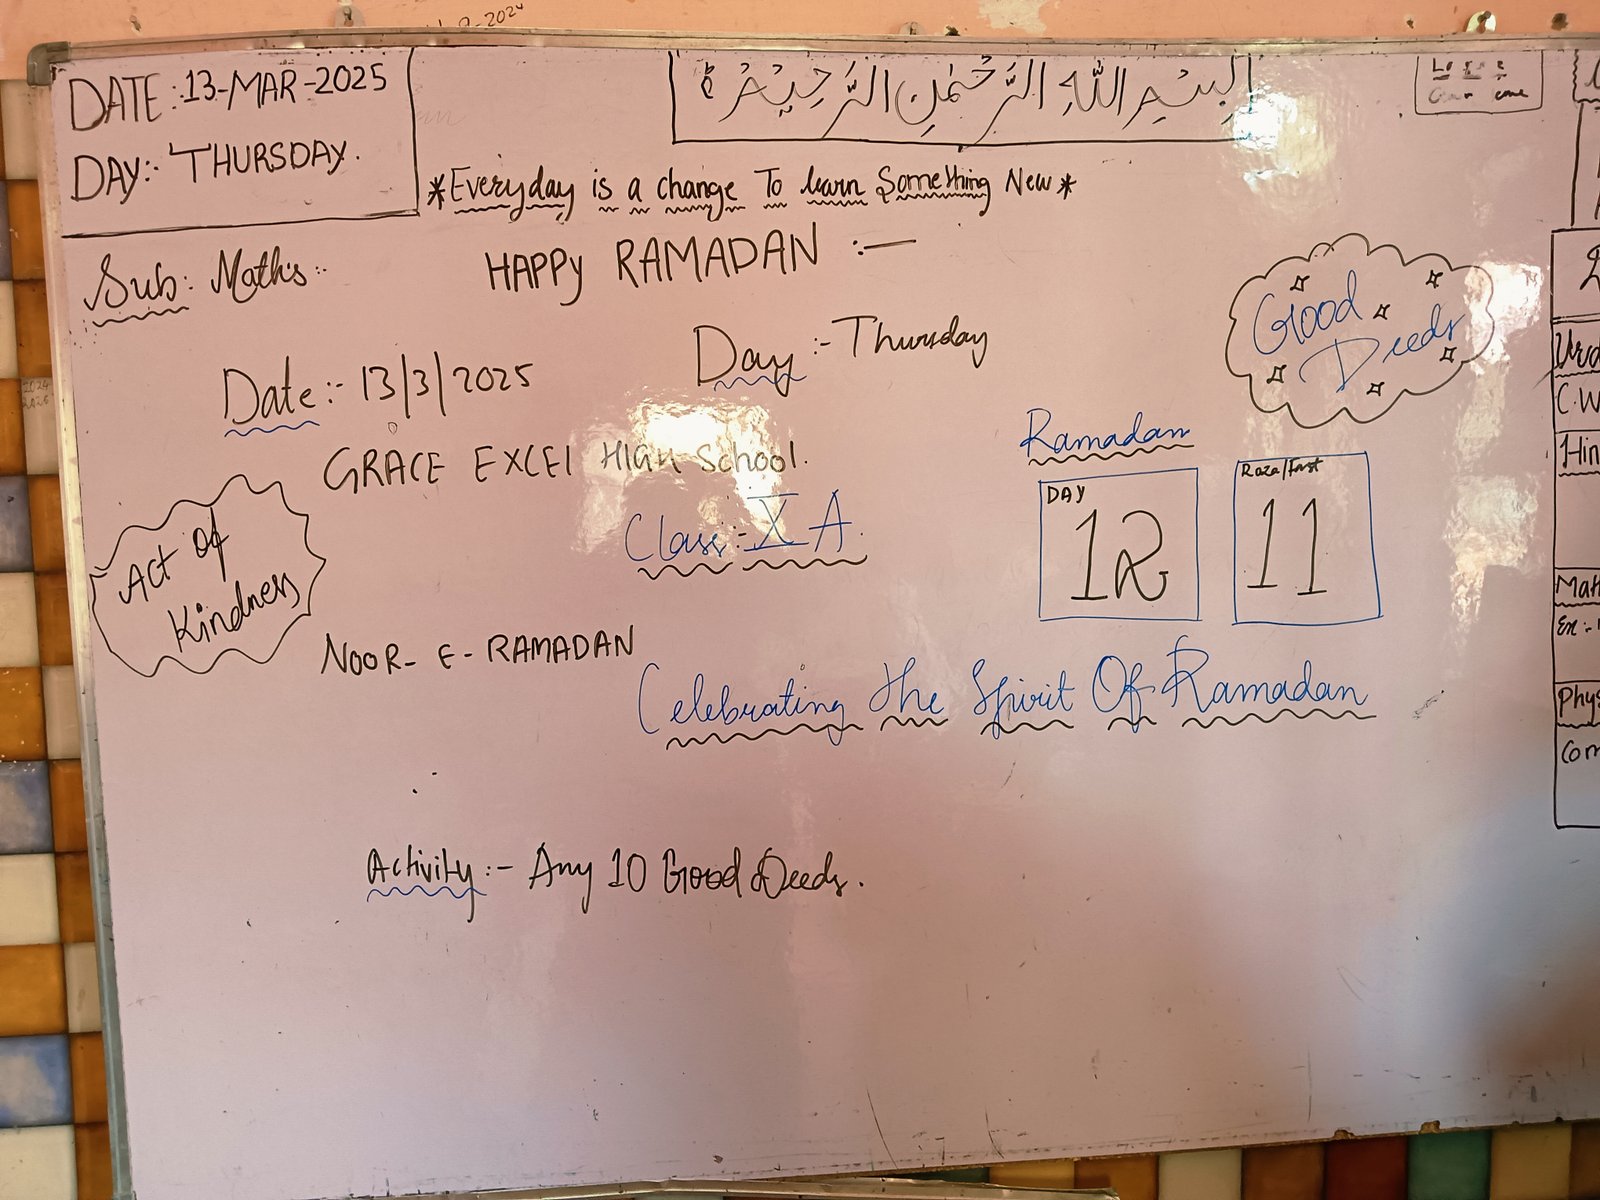 DATE : 13-MAR-2025
DAY:- THURSDAY.
بِسْمِ اللّٰهِ الرَّحْمٰنِ الرَّحِيْمِ
*Everyday is a change To learn Something New*
Sub: Maths:-
HAPPY RAMADAN :-
Date:- 13/3/2025
Day :- Thursday
Good
Deeds
GRACE EXCEl HIGH School.
Class:- X A.
Ramadan
DAY
12
Roza/fast
11
Act Of
Kindness
NOOR- E- RAMADAN
Celebrating the Spirit Of Ramadan
Activity :- Any 10 Good Deeds.
Urd
C.W
Hin
Mat
Ex:-
Phys
Com